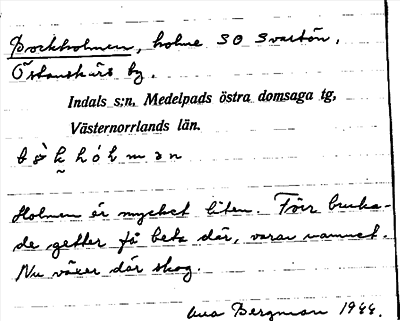 Bockholmen, holme SO Svartön,
Östanskärs by.
Indals s:n, Medelpads östra domsaga tg,
Västernorrlands län.
b ò̀ k h ó l m ə n
Holmen är mycket liten. Förr bruka-
de getter få beta där, varav namnet.
Nu växer där skog.
Bergman 1944.